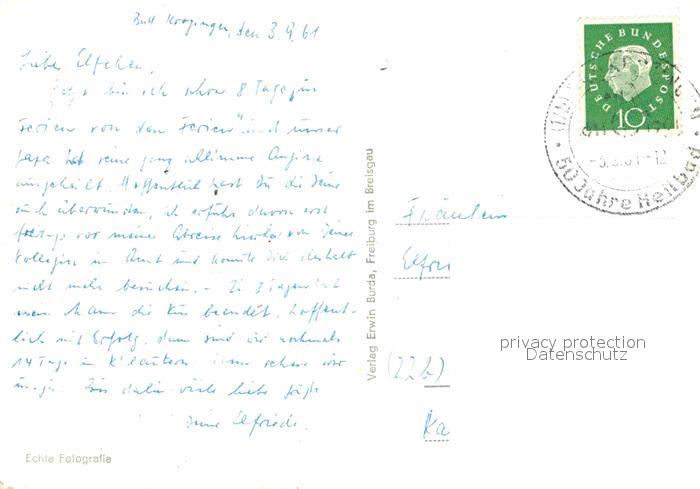 Bad Krozingen, den 3.9.61
Liebes Elfchen,
bin ich schon 8 Tage in
Ferien von den Ferien" und unser
Papa hat seine ganz schlimme Angina
ausgeheilt. Hoffentlich hast Du die Deine
auch überwunden, ich erfuhr davon erst
Tage vor meiner Abreise hierher von Deiner
Kollegin im Amt und konnte Dich deshalb
nicht mehr besuchen. - In 8 Tagen hat
mein Mann die Kur beendet, hoffent-
lich mit Erfolg, dann sind wir nochmals
14 Tage in K'lautern, dann sehen wir
uns ja. Bis dahin viele liebe Grüße
Deine Elfriede.
Echte Fotografie
Verlag Erwin Burda, Freiburg im Breisgau
DEUTSCHE BUNDESPOST
10
50 Jahre Heilbad
Fräulein
Elfri
(22b)
Ka
privacy protection
Datenschutz